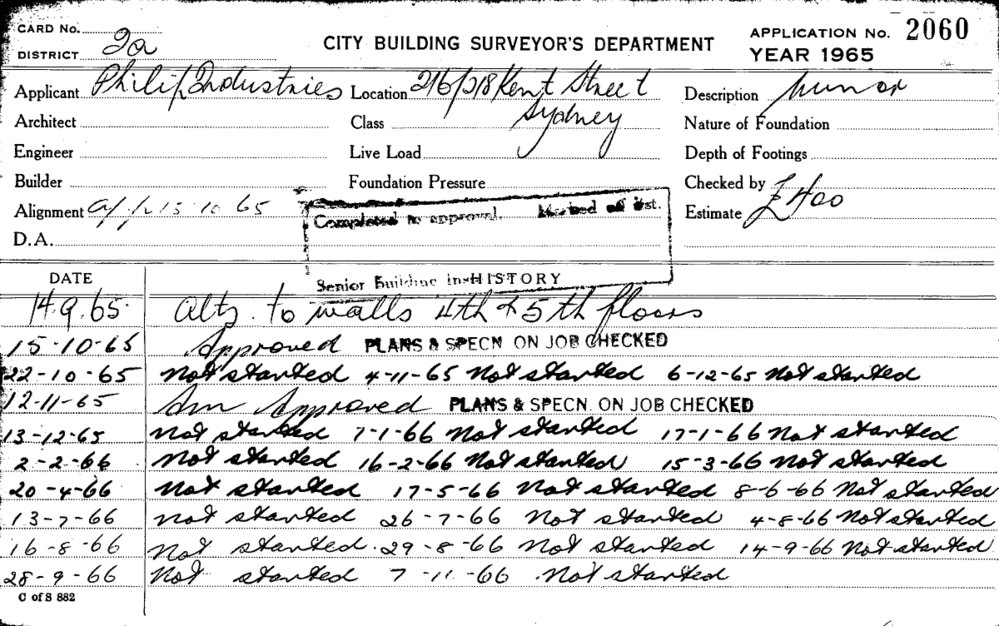 CARD No. 2a
DISTRICT
CITY BUILDING SURVEYOR'S DEPARTMENT
APPLICATION No. 2060
YEAR 1965
Applicant Philip Industries Location 216/218 Kent Street Description Minor
Architect Class Sydney Nature of Foundation
Engineer Live Load Depth of Footings
Builder Foundation Pressure Checked by
Alignment 15 10 65 Estimate £400
Completed to approval. Marked off list.
D.A.
Senior Building HISTORY
DATE
14.9.65. Alts. to walls 4th & 5th floors
15-10-65 Approved PLANS & SPECN ON JOB CHECKED
22-10-65 Not started 4-11-65 Not started 6-12-65 Not started
12-11-65 Am Approved PLANS & SPECN. ON JOB CHECKED
13-12-65 Not started 7-1-66 Not started 17-1-66 Not started
2-2-66 Not started 16-2-66 Not started 15-3-66 Not started
20-4-66 Not started 17-5-66 Not started 8-6-66 Not started
13-7-66 Not started 26-7-66 Not started 4-8-66 Not started
16-8-66 Not started. 29-8-66 Not started 14-9-66 Not started.
28-9-66 Not started 7-11-66 Not started
C of S 882